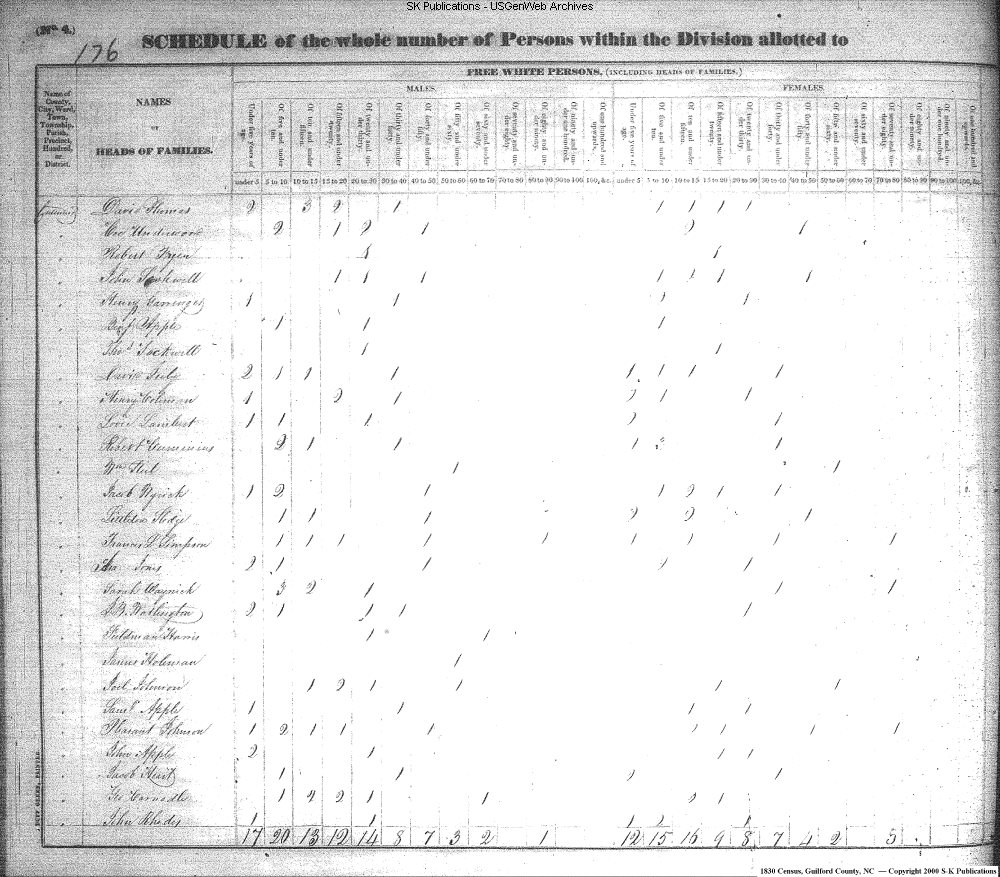 SK Publications - USGenWeb Archives
(No. 4.)
176
SCHEDULE of the whole number of Persons within the Division allotted to
FREE WHITE PERSONS, (INCLUDING HEADS OF FAMILIES.)
Name of County, City, Ward, Town, Township, Parish, Precinct, Hundred, or District.
NAMES
OF
HEADS OF FAMILIES.
MALES.
FEMALES.
Under five years of age
Of five and under ten
Of ten and under fifteen
Of fifteen and under twenty
Of twenty and under thirty
Of thirty and under forty
Of forty and under fifty
Of fifty and under sixty
Of sixty and under seventy
Of seventy and under eighty
Of eighty and under ninety
Of ninety and under one hundred
Of one hundred and upwards
under 5 5 to 10 10 to 15 15 to 20 20 to 30 30 to 40 40 to 50 50 to 60 60 to 70 70 to 80 80 to 90 90 to 100 100, &c. under 5 5 to 10 10 to 15 15 to 20 20 to 30 30 to 40 40 to 50 50 to 60 60 to 70 70 to 80 80 to 90 90 to 100 100, &c.
David 2 3 2 1 1 1 1 1
Geo Underwood 2 1 2 1 2 1
Robert Fryer 1 1
John 1 1 1 1 1 1 1
Henry 1 1 1 1
Benj Apple 1 1 1
Thos Lockwill 1 1
David 2 1 1 1 1 1 1 1
Henry Coleman 1 2 1 2 1 1 1
Lambert 1 1 1 2 1
Robert Cummins 2 1 1 1
Wm 1 1
Jacob 1 2 1 1 2 1 1
1 1 1 2 2 1
Francis L Simpson 1 1 1 1 1 1 1 1 1 1
Jones 2 1 1 2 1
Sarah Waynick 3 2 1 1 1
Wallington 2 1 1 1 1
Harris 1 1
James Holeman 1
Joel Johnson 1 2 1 1 1 1
Saml Apple 1 1 1 1
Pleasant Johnson 1 2 1 1 1 1 1 1 1
John Apple 2 1 1 1
Jacob Heart 1 1 1 1
Geo 1 4 2 1 1 2 1
John Rhodes 1 1 1 1 1
17 20 13 12 14 8 7 3 2 1 12 15 16 9 8 7 4 2 5
1830 Census, Guilford County, NC — Copyright 2000 S-K Publications